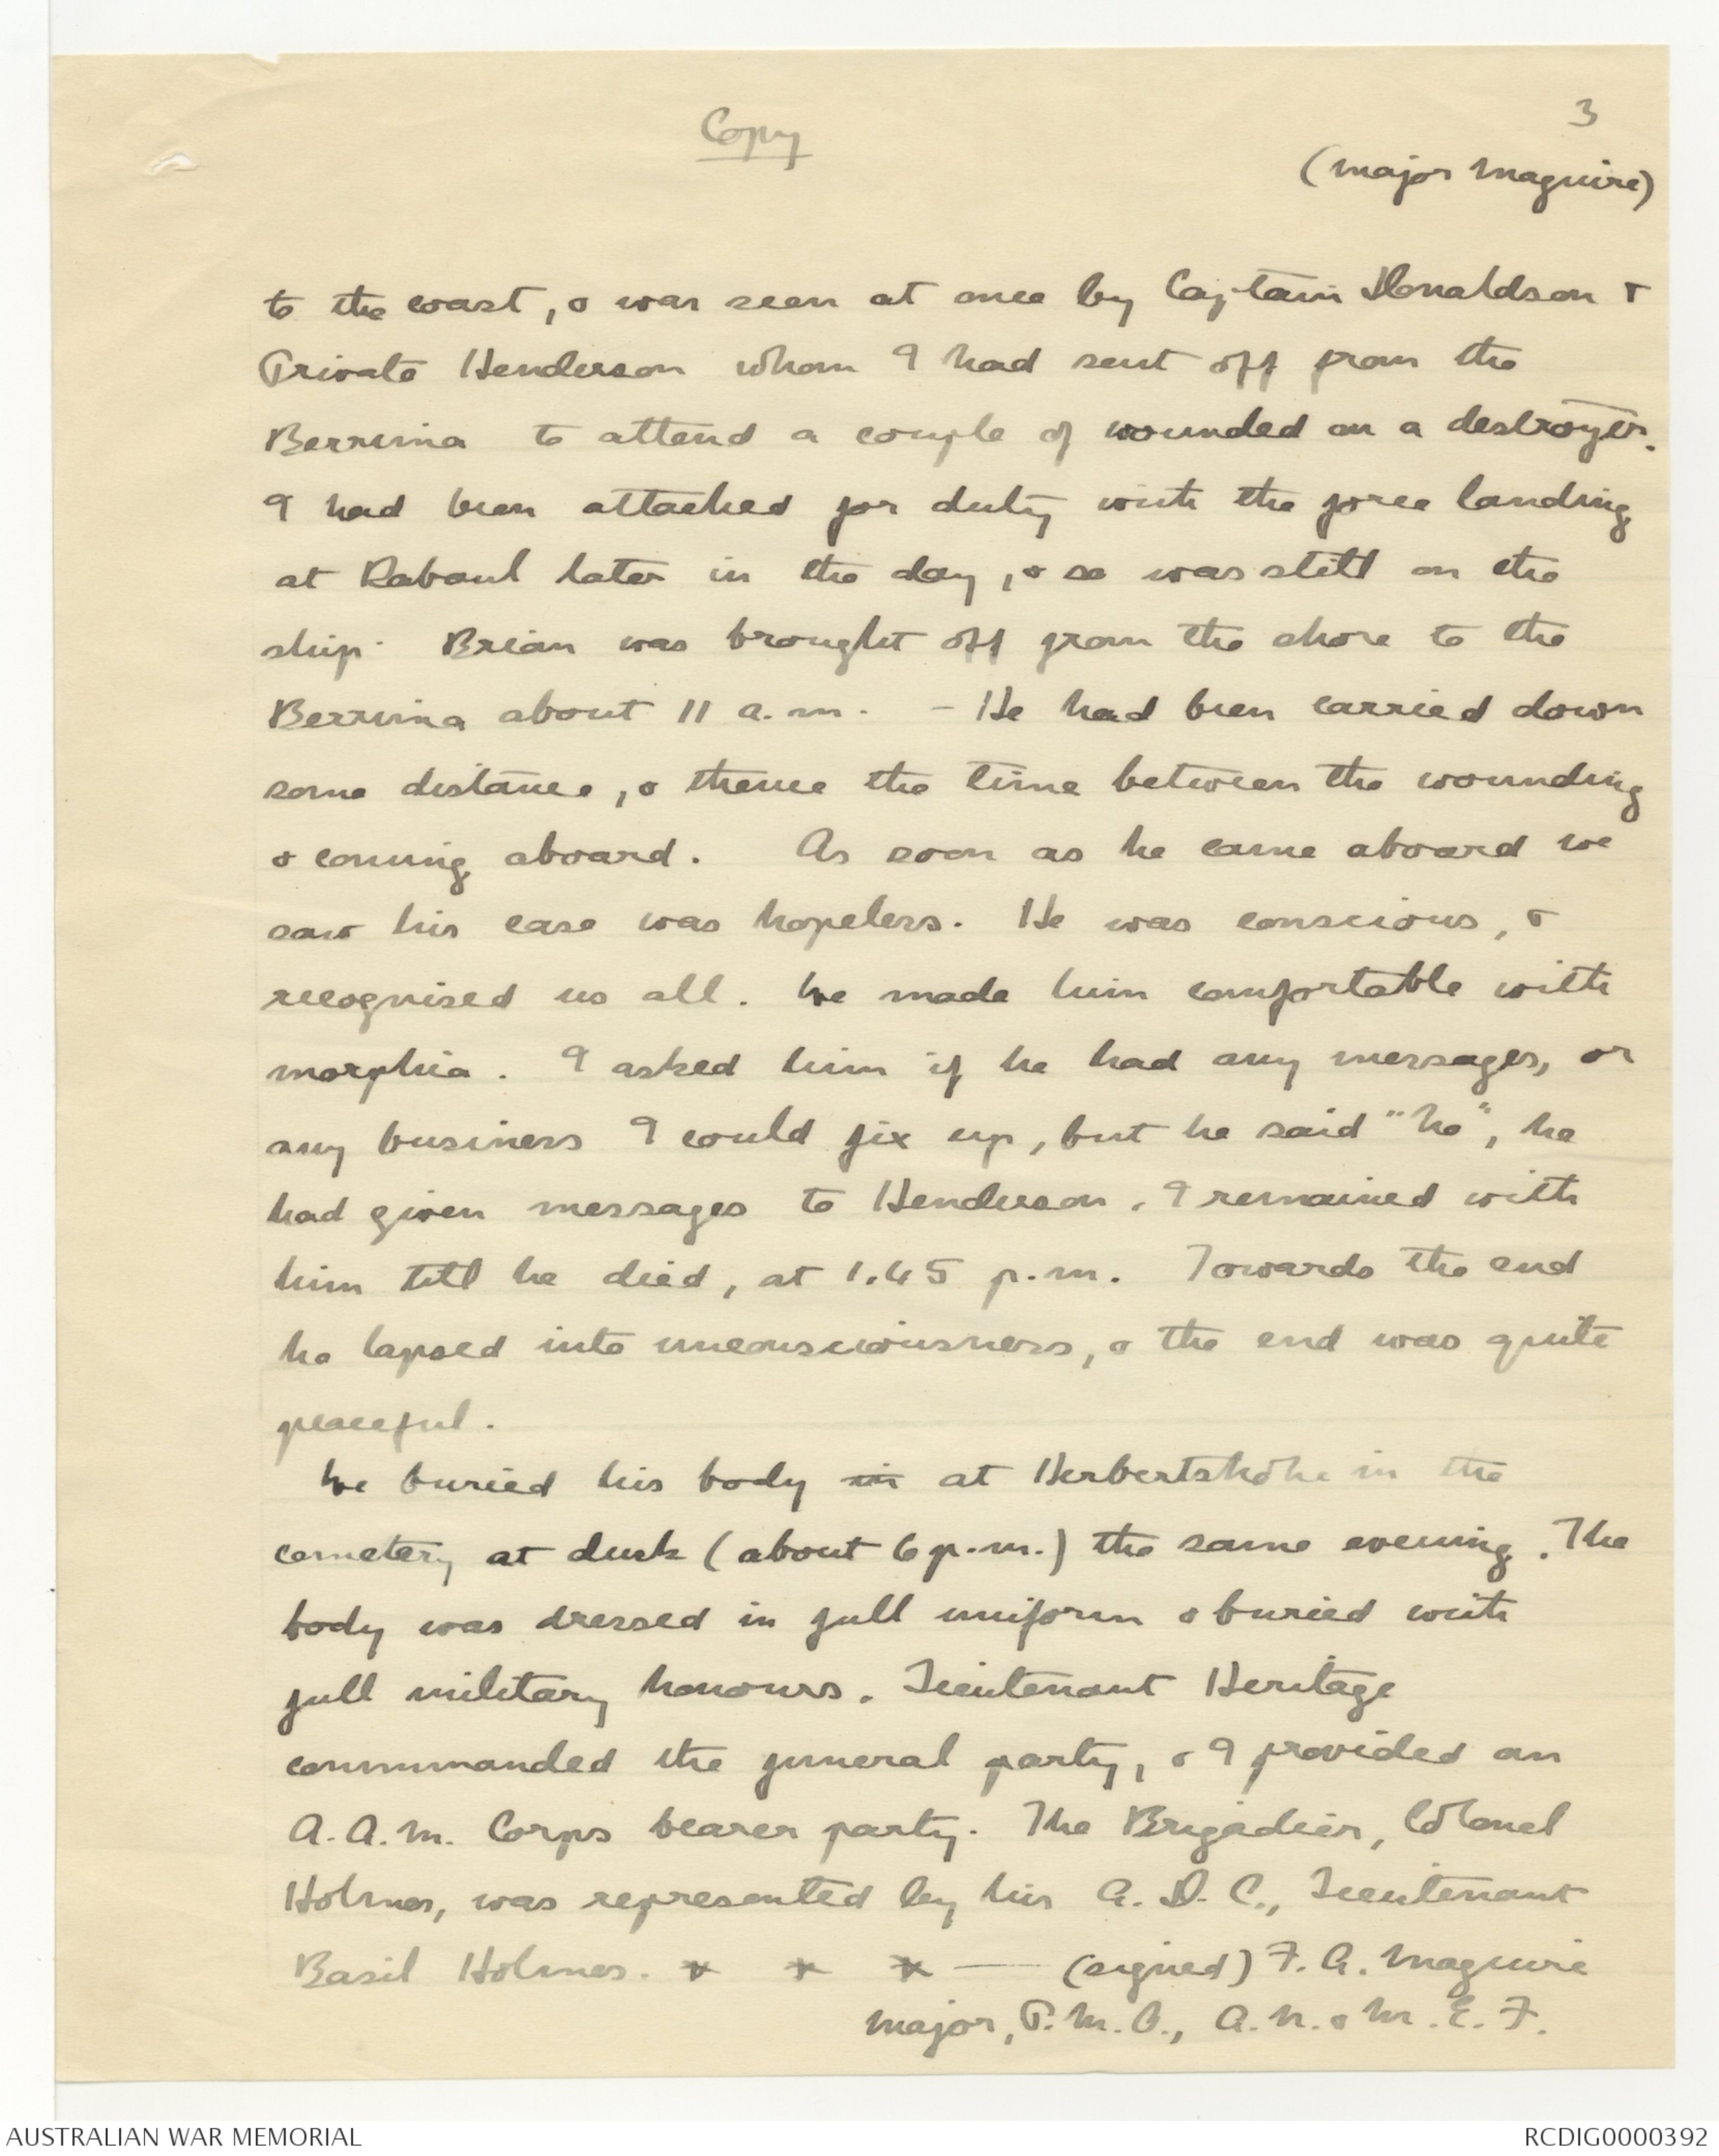 Copy
3
(Major Maguire)
to the coast, & was seen at once by Captain Donaldson &
Private Henderson whom I had sent off from the
Berrima to attend a couple of wounded on a destroyer.
I had been attached for duty with the force landing
at Rabaul later in the day, & so was still on the
ship. Brian was brought off from the shore to the
Berrima about 11 a.m. - He had been carried down
some distance, & thence the time between the wounding
& coming aboard. As soon as he came aboard we
saw his case was hopeless. He was conscious, &
recognised us all. We made him comfortable with
morphia. I asked him if he had any messages, or
any business I could fix up, but he said "No", he
had given messages to Henderson. I remained with
him till he died, at 1.45 p.m. Towards the end
he lapsed into unconsciousness, & the end was quite
peaceful.
We buried his body in at Herbertshöhe in the
cemetery at dusk (about 6 p.m.) the same evening. The
body was dressed in full uniform & buried with
full military honours. Lieutenant Heritage
commanded the funeral party, & I provided an
A.A.M. Corps bearer party. The Brigadier, Colonel
Holmes, was represented by his A.D.C., Lieutenant
Basil Holmes. * * * — (signed) F. A. Maguire
Major, P.M.O., A.N. & M.E.F.
AUSTRALIAN WAR MEMORIAL
RCDIG0000392